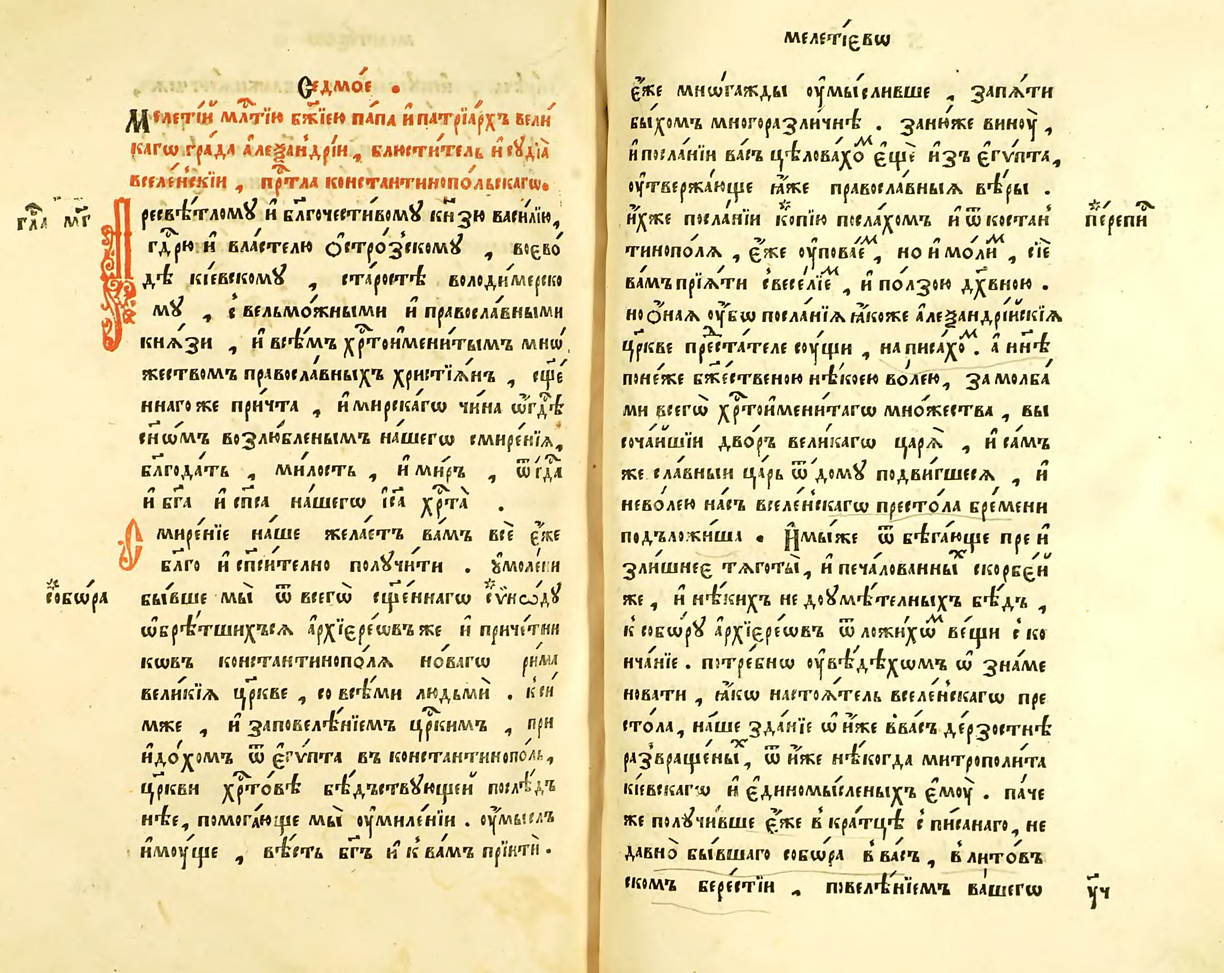 Седмо́е .
Меле́тїй мл҃тїю бж҃їею па́па и҆ патрїа́рхъ вели
кагѡ гра́да а҆леѯандрі́и , блюсти́тель и҆ сꙋдїа̀
вселе́нскїи , прⷭ҇тла константинопо́льскагѡ.
гла҃ мг҃
Пресвѣ́тломꙋ и҆ бл҃гочести́вомꙋ кн҃зю васи́лїю,
гдⷭ҇рю и҆ вла́стелю Ѻ҆стро́зскомꙋ , воево́
дѣ кі́евскомꙋ , ста́ростѣ володи́мерско
мꙋ , с вельмо́жными и҆ правосла́вными
кня́зи , и҆ всѣ́мъ хрⷭ҇тоимени́тымъ мнѡ́
жествомъ правосла́вныхъ христїя́нъ , сщ҃е́
ннаго же при́чта , и҆ мирска́гѡ чи́на ѡ҆ гдⷭ҇ѣ
сн҃ѡ́мъ возлю́бленымъ на́шегѡ смире́нїѧ,
бл҃года́ть , ми́лость , и҆ ми́ръ , ѿ гдⷭ҇а
и҆ бг҃а и҆ сп҃са на́шегѡ і҆с҃а хрⷭ҇та̀ .
Смире́нїе на́ше жела́етъ ва́мъ всѐ є҆́же
бл҃го и҆ сп҃си́телно получи́ти . ᲂумоле́ни
собѡ́ра
бы́вше мы̀ ѿ всегѡ̀ сщ҃е́ннагѡ сѵ́нѡдꙋ
ѡ҆брѣ́тшихъсѧ а҆рхїере́ѡвъ же и҆ приче́тни
кѡвъ константинопо́лѧ но́вагѡ ри́ма
вели́кїѧ цр҃кве , со всѣ́ми людьмѝ . к си́
мже , и҆ заповелѣ́нїемъ црⷭ҇кимъ , при
и҆до́хомъ ѿ є҆гѵ́пта въ константинопо́ль,
цр҃кви хрⷭ҇то́вѣ бѣ́дъствꙋющей послѣ́дъ
нѣе, помога́юще мы̀ ᲂу҆миле́нїи . ᲂу҆мы́слъ
и҆мꙋ́ще , вѣ́сть бг҃ъ и҆ к ва́мъ прїитѝ .
мелетїевѡ
є҆́же мнѡ́гажды ᲂу҆мы́сливше , запѧ́ти
бы́хомъ многоразли́чнѣ . зане́же винꙋ̀ ,
и҆ посла́нїи ва́съ цѣлова́хоⷨ є҆щѐ и҆зъ є҆гѵ́пта,
ᲂу҆твержа́юще ꙗ҆́же правосла́вныѧ вѣ́ры .
перепи́с
и҆́хже посла́нїи ко́пїю посла́хомъ и҆ ѿ костан
тинопо́лѧ , є҆́же ᲂу҆пова́еⷨ , но и҆ мо́лиⷨ , сїѐ
ва́мъ прїѧ́ти с весе́лїеⷨ , и҆ по́лзою дх҃вною .
но Ѻ҆́наѧ ᲂу҆́бѡ посла́нїѧ ꙗ҆́коже а҆леѯандрі́йскїѧ
цр҃кве предста́теле сꙋ́щи , написа́хоⷨ . а҆ нн҃ѣ
поне́же бж҃е́ственою нѣ́коею во́лею, за молба́
ми всегѡ̀ хрⷭ҇тоимени́тагѡ мно́жества , вы
соча́йшїй дво́ръ вели́кагѡ царѧ̀ , и҆ са́мъ
же сла́вный ца́рь ѿ до́мꙋ подви́гшеесѧ , и҆
нево́лею на́съ вселе́нскагѡ престо́ла бре́мени
подъложи́ша . И҆ мы́ же ѿ бѣ́гающе пре и҆
зли́шнее тѧготы̀ , и҆ печа́лованныⷯ ско́рбей
же , и҆ нѣ́кихъ не доᲂумѣ́телныхъ бѣ́дъ ,
к собѡ́рꙋ а҆рхїере́ѡвъ ѿложи́хѡⷨ ве́щи с ко
нча́нїе . потре́бнѡ ᲂу҆вѣ́дѣхѡмъ ѡ҆ зна́ме
новати , ꙗ҆́кѡ настоѧ́тель вселе́нскагѡ пре
сто́ла, на́ше зда́нїе ѡ҆ и҆́же в ва́съ де́рзостнѣ
развраще́ныⷯ , ѿ и҆́же нѣ́когда митрополи́та
кі́евскагѡ и҆ є҆диномы́сленыхъ є҆мꙋ̀ . па́че
же полꙋчи́вше є҆́же в кра́тцѣ с писа́наго, не
да́внѡ бы́вшаго собѡ́ра в ва́съ , в лито́въ
скомъ бере́стїи , повелѣ́нїемъ ва́шегѡ